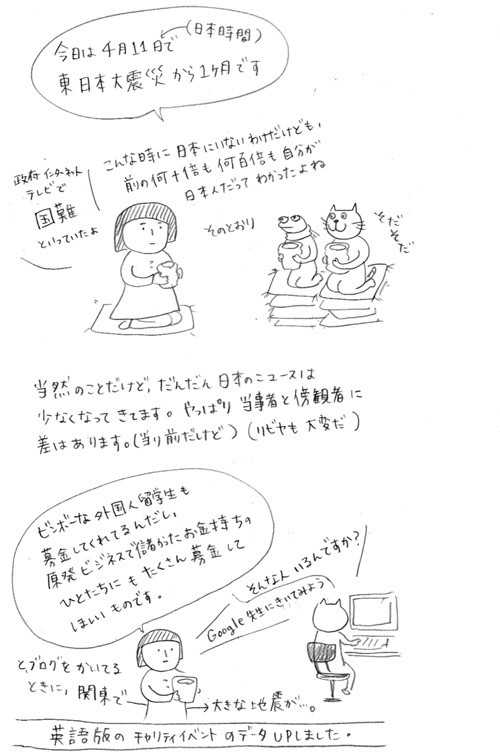 今日は4月11日で
(日本時間)
東日本大震災から1ヶ月です
こんな時に日本にいないわけだけども、
前の何十倍も何百倍も自分が
日本人だってわかったよね
政府インターネット
テレビで
国難
といっていたよ
そのとおり
そだ
そだ
当然のことだけど、だんだん日本のニュースは
少なくなってきてます。やっぱり当事者と傍観者に
差はあります。(当り前だけど)(リビヤも大変だ)
ビンボーな外国人留学生も
募金してくれてるんだし、
原発ビジネスで儲かったお金持ちの
ひとたちにもたくさん募金して
ほしいものです。
そんな人いるんですか?
Google先生にきいてみよう
と、ブログをかいてる
ときに、関東で
→大きな地震が…。
英語版のチャリティイベントのデータUPしました。